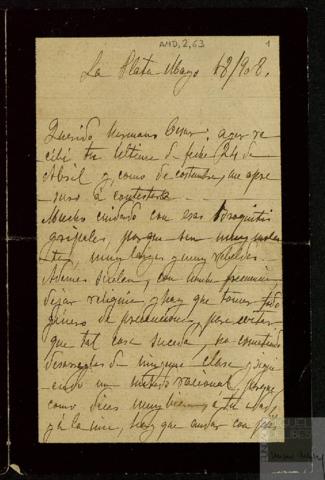 AMD, 2, 63
1
La Plata Mayo 18/908.
Querido hermano Cesar: ayer re
cibí tu última de fecha 24 de
Abril y como de costumbre, me apre
suro á contestarla
Mucho cuidado con esas bronquitis
gripales, porque son muy moles
tas, muy largas y muy rebeldes.
Además suelen, con mucha frecuencia,
dejar reliquia y hay que tomar todo
género de precauciones, para evitar
que tal cosa suceda, no cometiendo
desarreglos de ninguna clase, y sigui
endo un método racional, porque
como dices muy bien, á tu edad,
y á la mia, hay que andar con pies